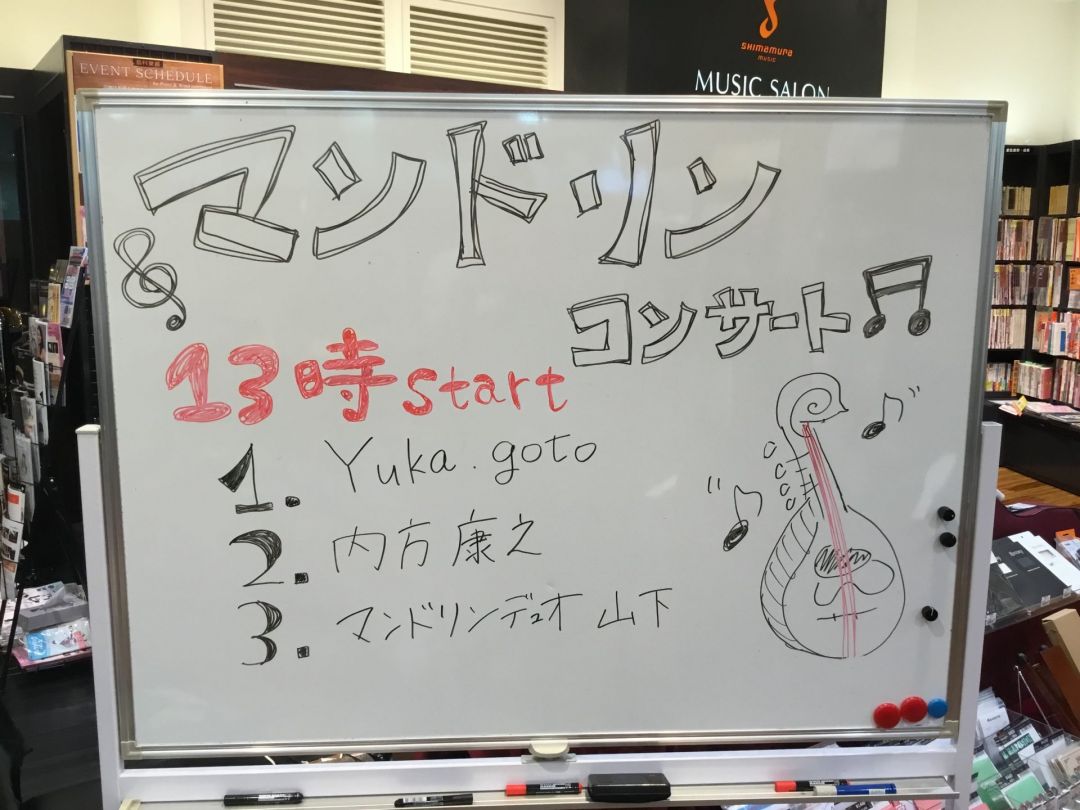 島村楽器
EVENT SCHEDULE
SHIMAMURA
MUSIC
MUSIC SALON
マンドリン
コンサート
13時start
1. Yuka.goto
2. 内方康之
3. マンドリンデュオ 山下